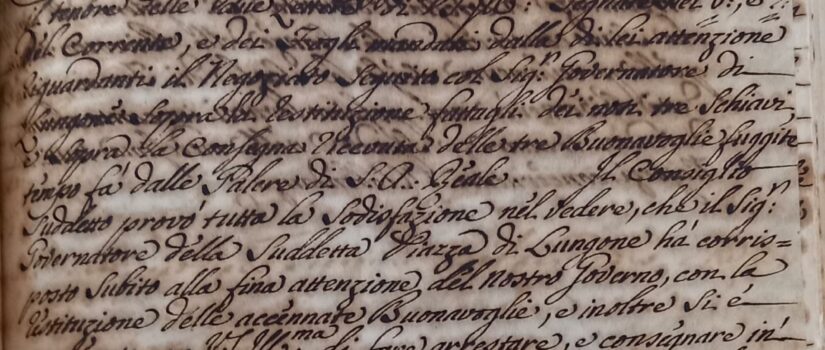 il tenore delle
del Corrente, e dei Fogli mandati dalla di lei attenzione
riguardanti il Negoziato Seguito col Sig.r Governatore di
Lungone sopra la restituzione fattagli dei noti tre Schiavi,
e sopra la Consegna ricevuta delle tre Buonavoglie fuggite
tempo fà dalle Galere di S: A: Reale Il Consiglio
Suddetto provò tutta la Sodisfazione nel vedere, che il Sig.r
Governatore della Suddetta Piazza di Lungone hà corris=
posto Subito alla fina attenzione del Nostro Governo, con la
restituzione delle accennate Buonavoglie, e inoltre si è
di fare arrestare, e consegnare in